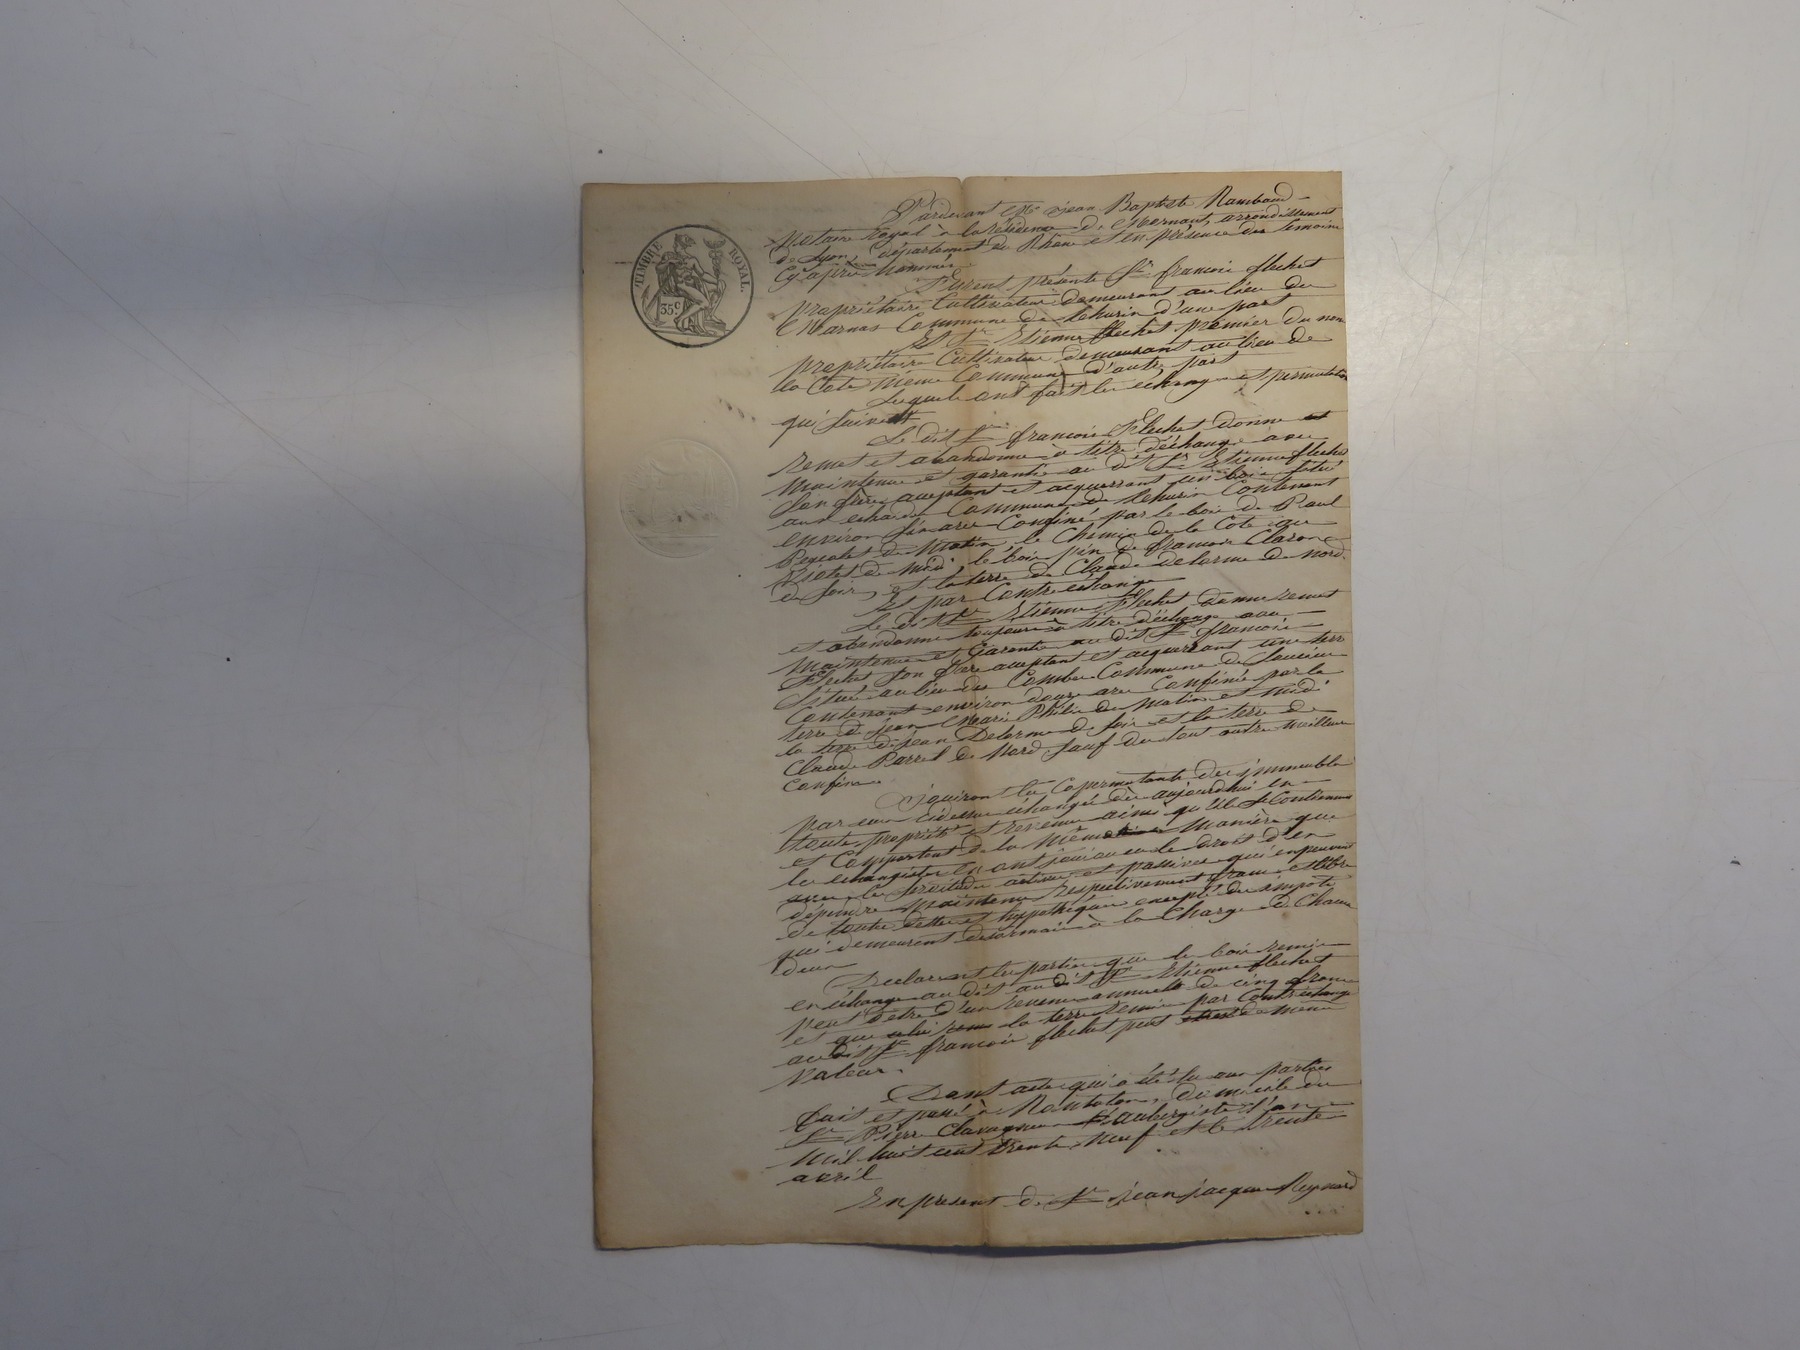 TIMBRE ROYAL.
35c
Pardevant Me Jean Baptiste Rambaud
Notaire Royal à la résidence de Mornant, arrondissement
de Lyon département du Rhône et en présence des témoins
Cy après Nommés
Furent présents Sr françois flechet
propriétaire Cultivateur demeurant au lieu de
Marnas Commune de thurin d'une part
Et Sr Etienne flechet premier du nom
propriétaire Cultivateur demeurant au lieu de
la Cote même Commune d'autre part
Lesquels ont fait les échanges et permutation
qui suivent
Le dit Sr françois Flechet donne
remet et abandonne à titre d'échange avec
maintenue et garantie au dit Sr Etienne flechet
son frère acceptant et acquerrant un bois situé
aux Commune de thurin Contenant
environ six ares Confiné par le bois de Paul
de Matin, le Chemin de la Cote au
de midi le bois pin de francois Claron
de soir, et la terre de Claude delorme de nord
Et par Contre échange
Le dit Sr Etienne Flechet donne remet
et abandonne toujours à titre d'échange avec
maintenue et Garentie au dit Sr francois
Flechet son frère acceptant et acquerrant une terre
située au lieu des Combes Commune de Soucieu
Contenant environ douze ares Confinée par la
terre de jean Marie Philis de Matin et midi
la terre de jean Delorme de soir et la terre de
Claude de Nord sauf de tout autre meilleurs
Confins
Jouiront les Copermutants des immeubles
par eux cidessus échangés dès aujourdhui en
toute propriété et revenu ainsi qu'ils se Contiennent
et Comportent de la Même Manière que
les échangistes en ont joui ou eu le droit d'en
avec les servitudes actives et passives qui en peuvent
dépendre Maintenus respectivement francs et libres
de toutes dettes et hypothèques excepté des impots
qui demeurent desormais à la Charge de Chacun
deux
Declarent les parties que le bois remis
en échange au dit au dit Sr Etienne flechet
peut Etre d'un revenu annuel de cinq francs
et que la terre remise par Contréchange
au dit Sr francois flechet peut de même
Valeur.
Dont acte qui a été lu aux parties
fait et passé à Rontalon, domicile du
Sr Pierre Clavagnier aubergiste l'an
mil huit cent trente Neuf et le trente
avril
En present de Sr jean jacques Reynard